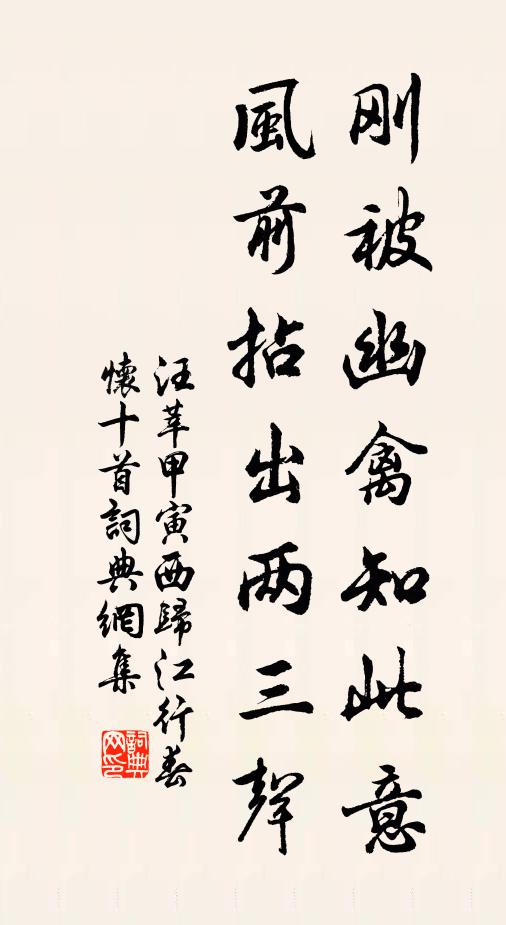 刚被幽禽知此意
風前拈出两三聲
汪莘甲寅西歸江行春
懷十首詞典網集
詞典
网印